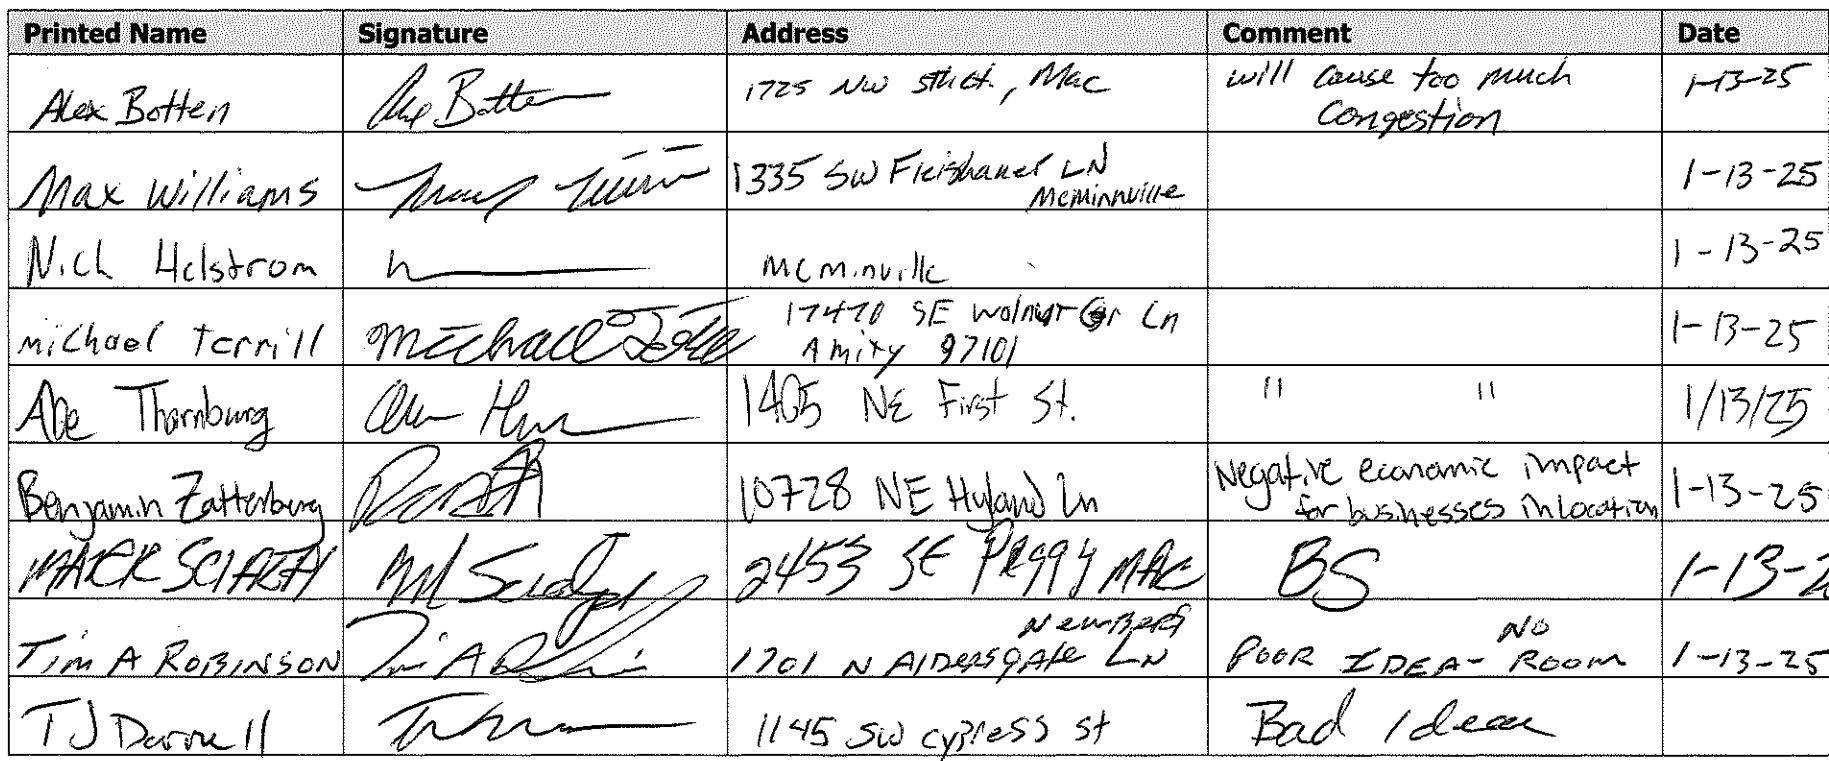 Printed Name Signature Address Comment Date
Alex Botten Alex Botten 1725 NW 5th Ct., Mac will cause too much 1-13-25
Congestion
Max Williams 1335 SW Fleishauer LN 1-13-25
McMinnville
Nick Helstrom McMinville 1-13-25
michael Terrill Michael 17470 SE Walnut Ln 1-13-25
Amity 97101
Abe Thornburg 1405 NE First St. " " 1/13/25
Benjamin Zatterburg 10728 NE Hyland Ln Negative economic impact 1-13-25
for businesses in location
MARK 2453 SE Peggy MAC BS 1-13-2
Newberg NO
Tim A ROBINSON Tim A 1701 N Aldersgate LN POOR IDEA- ROOM 1-13-25
TJ Darnell 1145 SW cypress st Bad Idea